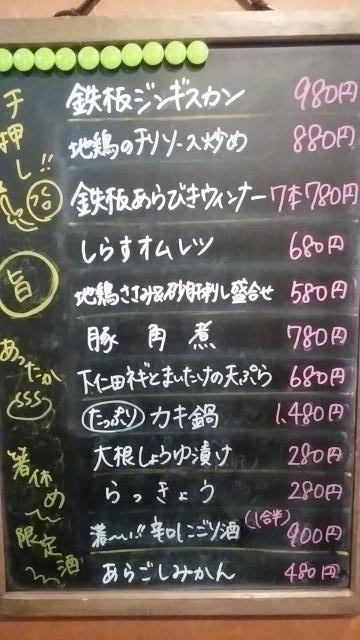 鉄板ジンギスカン 980円
地鶏のチリソース炒め 880円
鉄板あらびきウィンナー 7本780円
しらすオムレツ 680円
地鶏ささみ&砂肝刺し盛合せ 580円
豚角煮 780円
下仁田ネギとまいたけの天ぷら 680円
たっぷり カキ鍋 1,480円
大根しょうゆ漬け 280円
らっきょう 280円
濃〜い!! 辛口にごり酒 (1合半) 900円
あらごしみかん 480円
旨
あったか
箸休め
限定酒